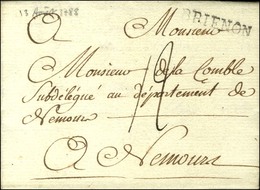 13 Août 1788
BRIENON
A Monsieur
Monsieur de la Comble
Subdélégué au département de
Nemours
12
A Nemours